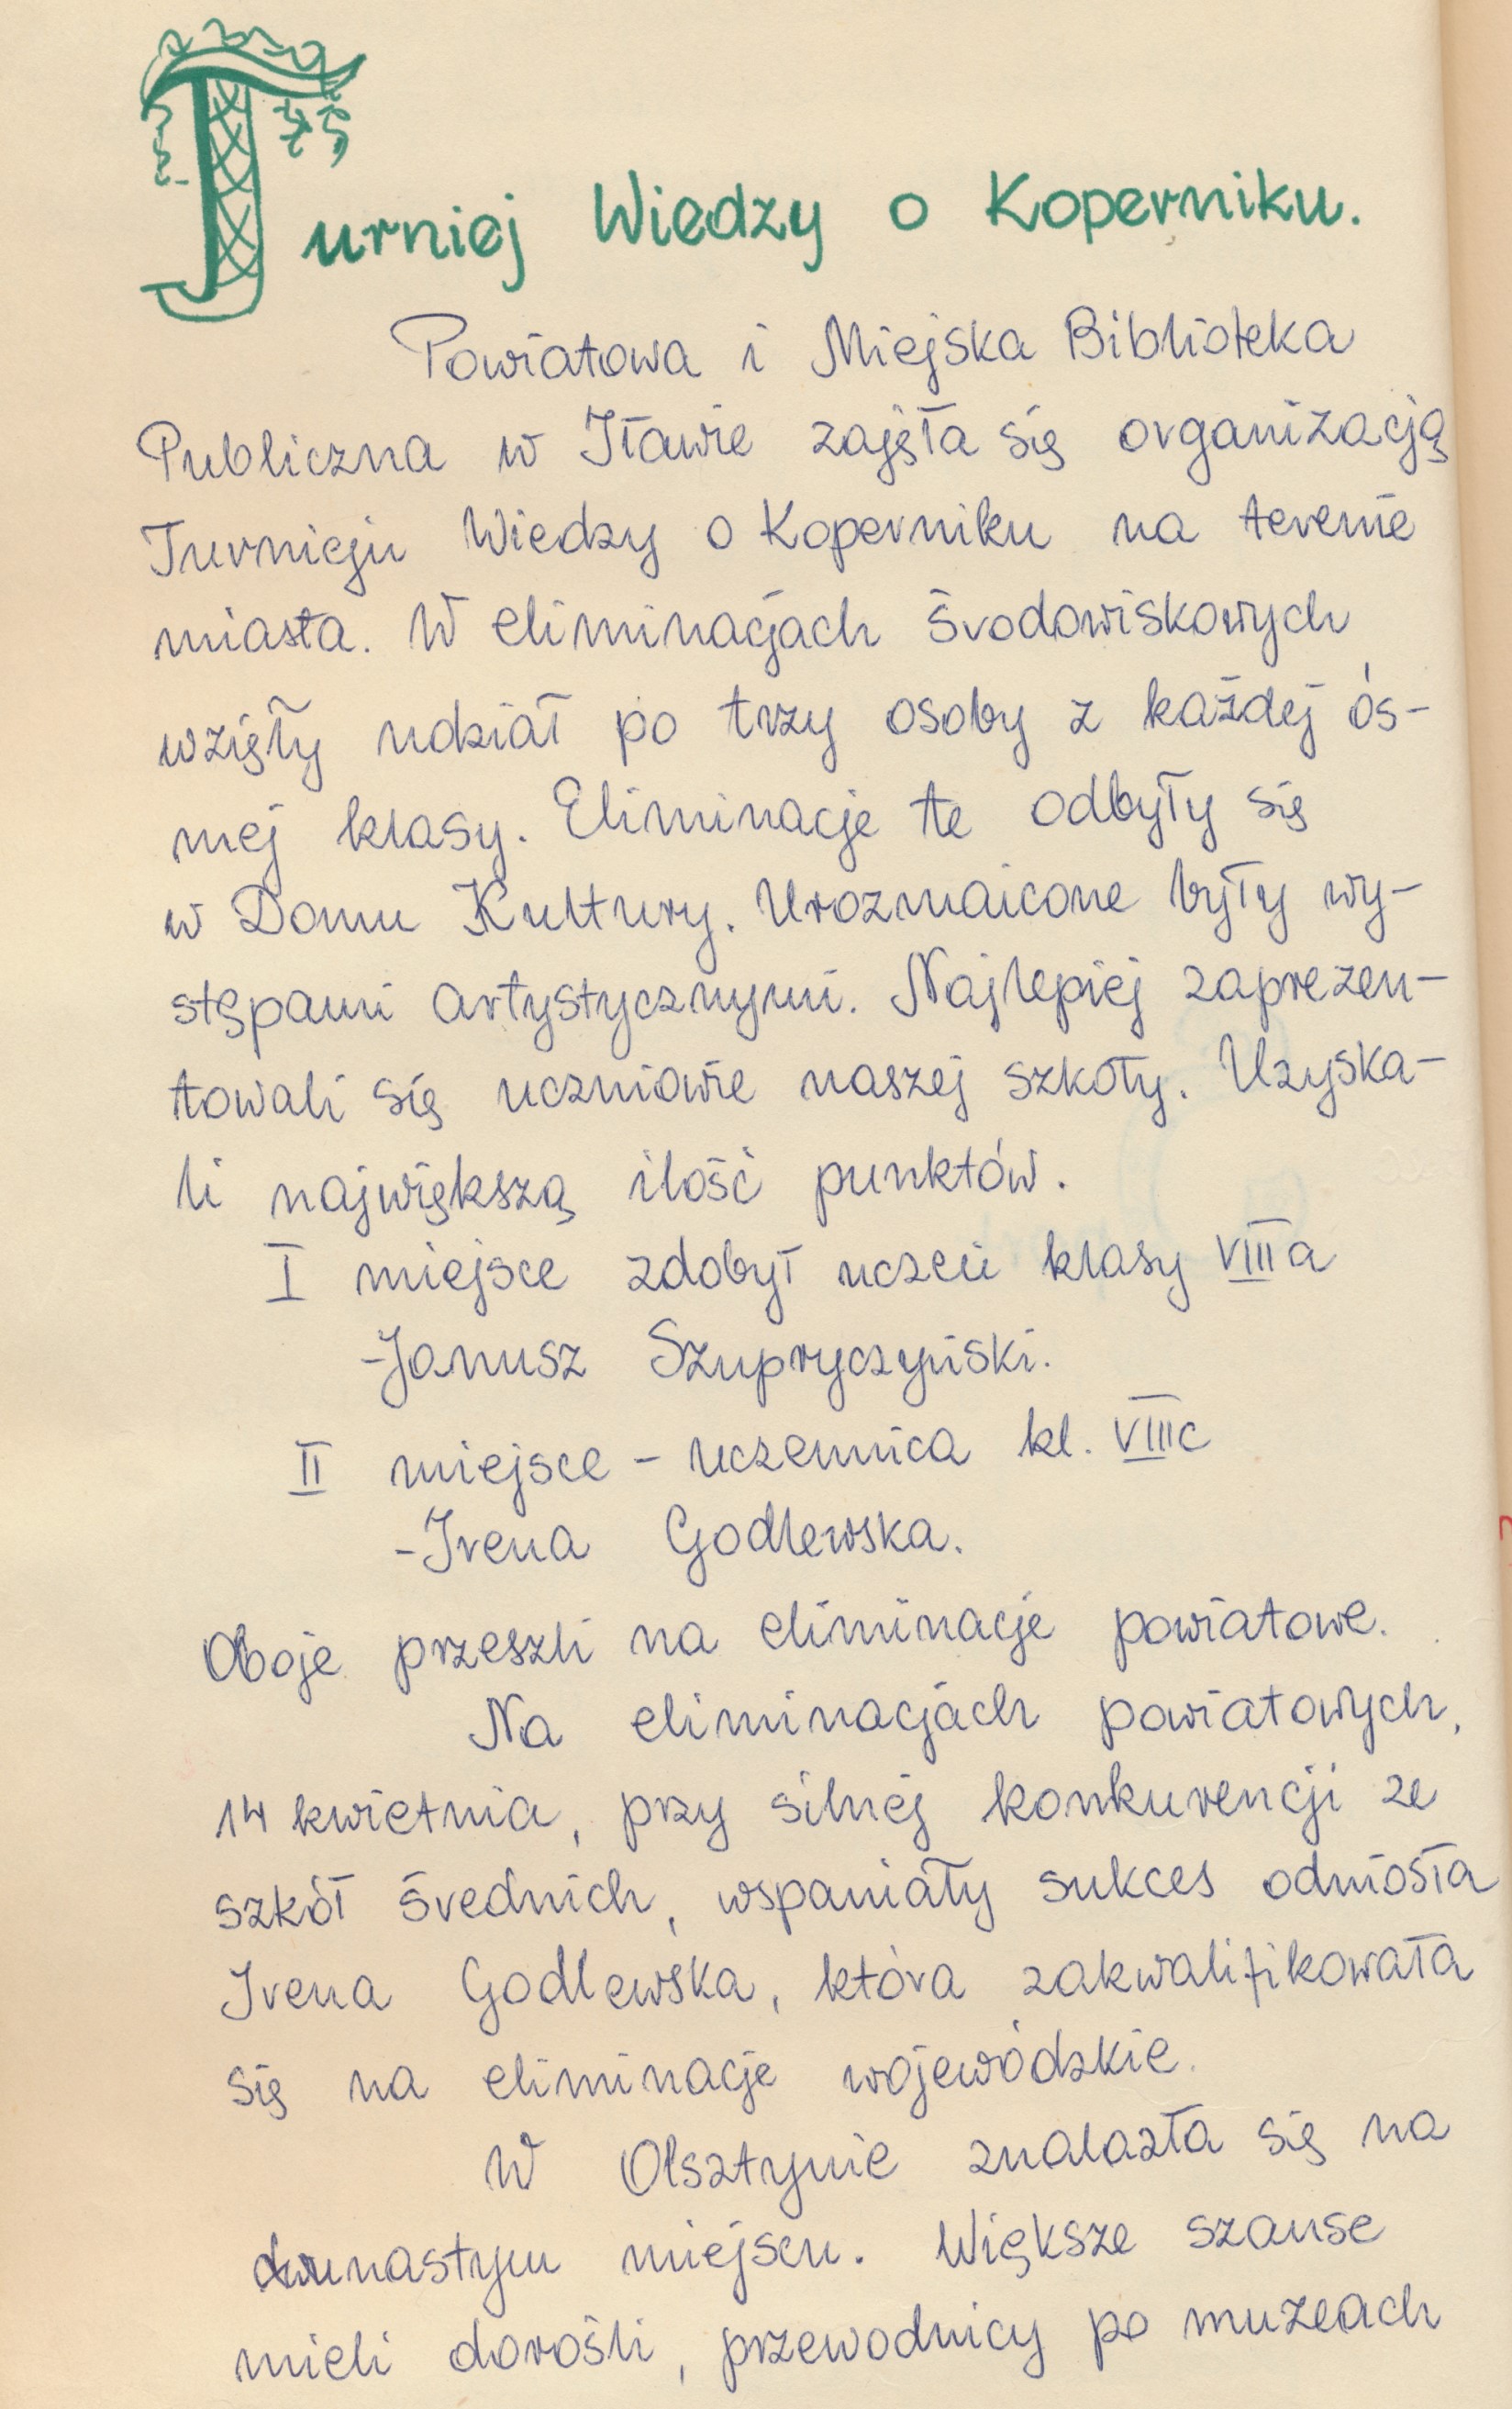 Turniej Wiedzy o Koperniku.
Powiatowa i Miejska Biblioteka
Publiczna w Iławie zajęła się organizacją
Turnieju Wiedzy o Koperniku na terenie
miasta. W eliminacjach środowiskowych
wzięły udział po trzy osoby z każdej ós-
mej klasy. Eliminacje te odbyły się
w Domu Kultury. Urozmaicone były wy-
stępami artystycznymi. Najlepiej zaprezen-
towali się uczniowie naszej szkoły. Uzyska-
li największą ilość punktów.
I miejsce zdobył uczeń klasy VIIIa
-Janusz Szupryczyński.
II miejsce - uczennica kl. VIIIc
-Irena Godlewska.
Oboje przeszli na eliminacje powiatowe.
Na eliminacjach powiatowych,
14 kwietnia, przy silnej konkurencji ze
szkół średnich, wspaniały sukces odniosła
Irena Godlewska, która zakwalifikowała
się na eliminacje wojewódzkie.
W Olsztynie znalazła się na
dwunastym miejscu. Większe szanse
mieli dorośli, przewodnicy po muzeach